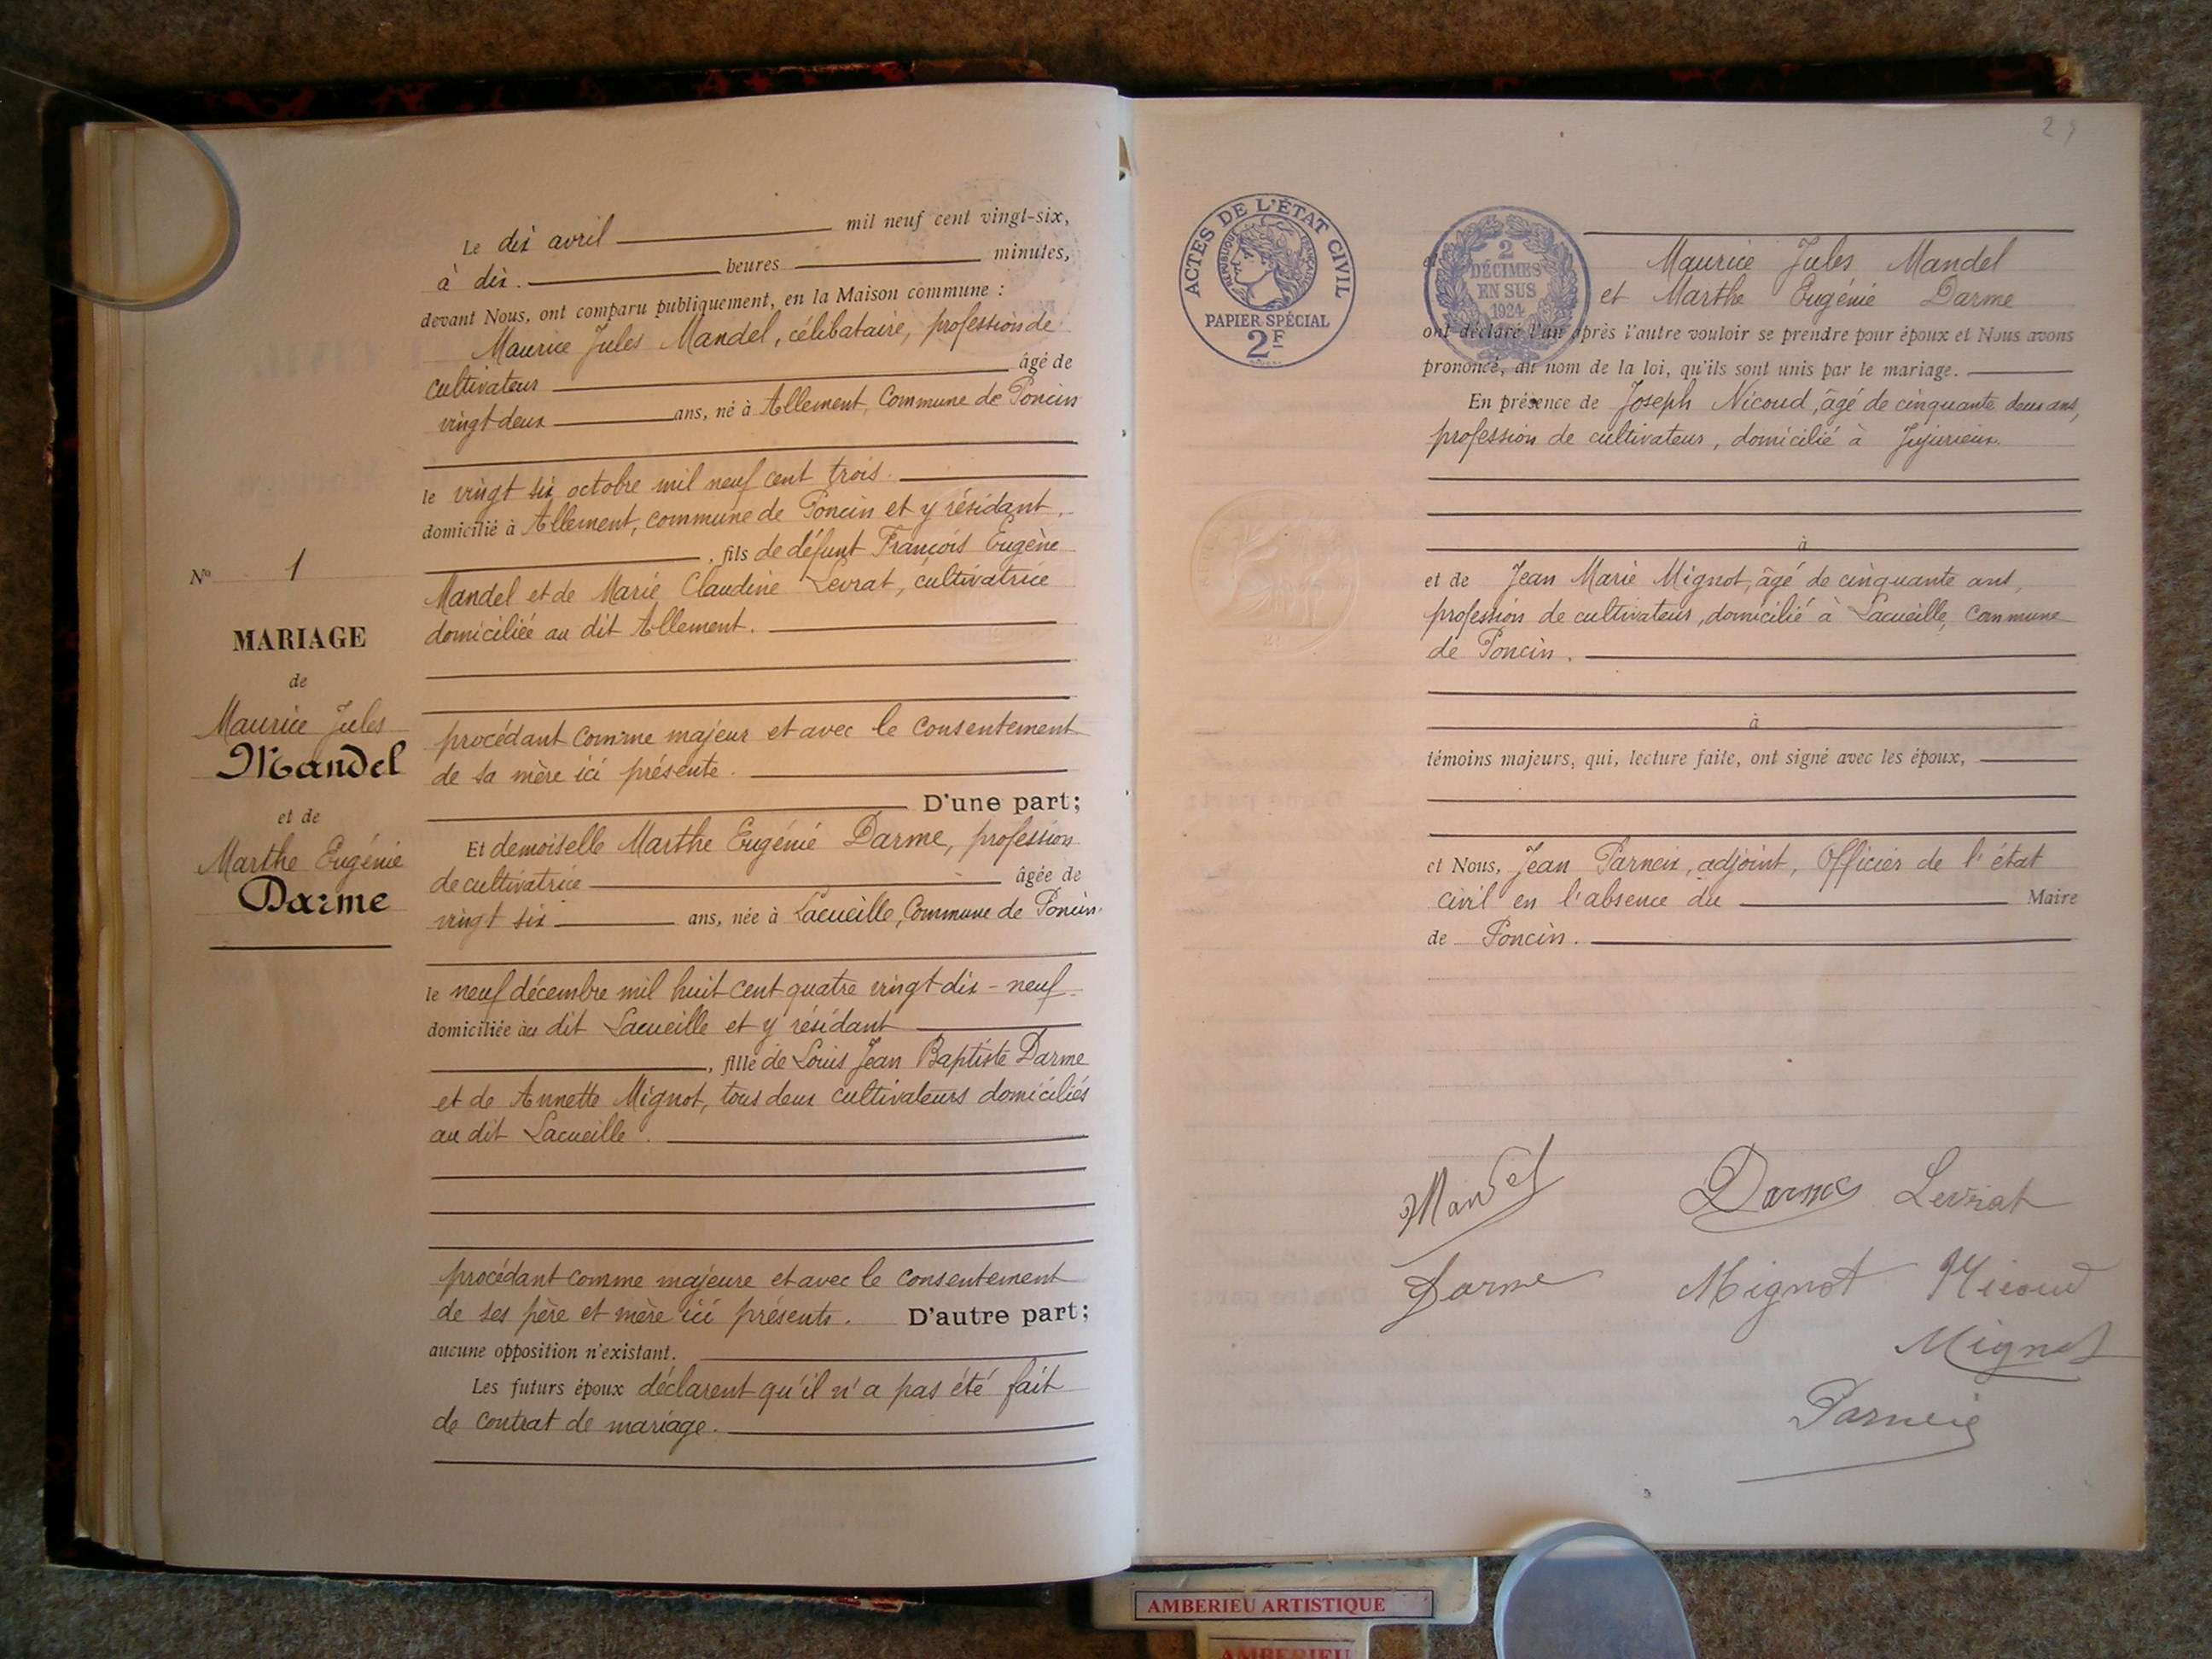 Le dix avril mil neuf cent vingt-six,
à dix. heures minutes,
devant Nous, ont comparu publiquement, en la Maison commune :
Maurice Jules Mandel, célibataire, profession de
cultivateur âgé de
vingt deux ans, né à Allement, Commune de Poncin
le vingt six octobre mil neuf cent trois.
domicilié à Allement, commune de Poncin et y résidant,
, fils de défunt François Eugène
Mandel et de Marie Claudine Levrat, cultivatrice
domiciliée au dit Allement.
procédant comme majeur et avec le consentement
de sa mère ici présente.
D'une part;
Et demoiselle Marthe Eugénie Darme, profession
de cultivatrice âgée de
vingt six ans, née à Lacueille, Commune de Poncin.
le neuf décembre mil huit cent quatre vingt dix-neuf
domiciliée au dit Lacueille et y résidant
, fille de Louis Jean Baptiste Darme
et de Annette Mignot, tous deux cultivateurs domiciliés
au dit Lacueille.
procédant comme majeure et avec le consentement
de ses père et mère ici présents. D'autre part;
aucune opposition n'existant.
Les futurs époux déclarent qu'il n'a pas été fait
de contrat de mariage.
No 1
MARIAGE
de
Maurice Jules
Mandel
et de
Marthe Eugénie
Darme
ACTES DE L'ÉTAT CIVIL
RÉPUBLIQUE FRANÇAISE
PAPIER SPÉCIAL
2F
2
DÉCIMES
EN SUS
1924
Maurice Jules Mandel
et Marthe Eugénie Darme
ont déclaré l'un après l'autre vouloir se prendre pour époux et Nous avons
prononcé, au nom de la loi, qu'ils sont unis par le mariage.
En présence de Joseph Nicoud, âgé de cinquante deux ans,
profession de cultivateur, domicilié à Jujurieux.
à
et de Jean Marie Mignot, âgé de cinquante ans,
profession de cultivateur, domicilié à Lacueille, Commune
de Poncin.
à
témoins majeurs, qui, lecture faite, ont signé avec les époux,
et Nous, Jean Parneix, adjoint, Officier de l'état
civil en l'absence du Maire
de Poncin.
Mandel Darme Levrat
Darme Mignot Nicoud
Mignot
Parneix
AMBERIEU ARTISTIQUE
AMBERIEU